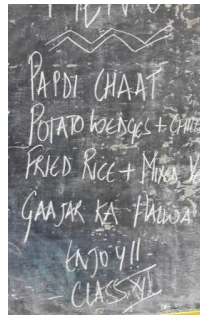 MENU
PAPDI CHAAT
POTATO WEDGES +
FRIED RICE + MIXED
GAAJAR KA HALWA
ENJOY!!
- CLASS XII